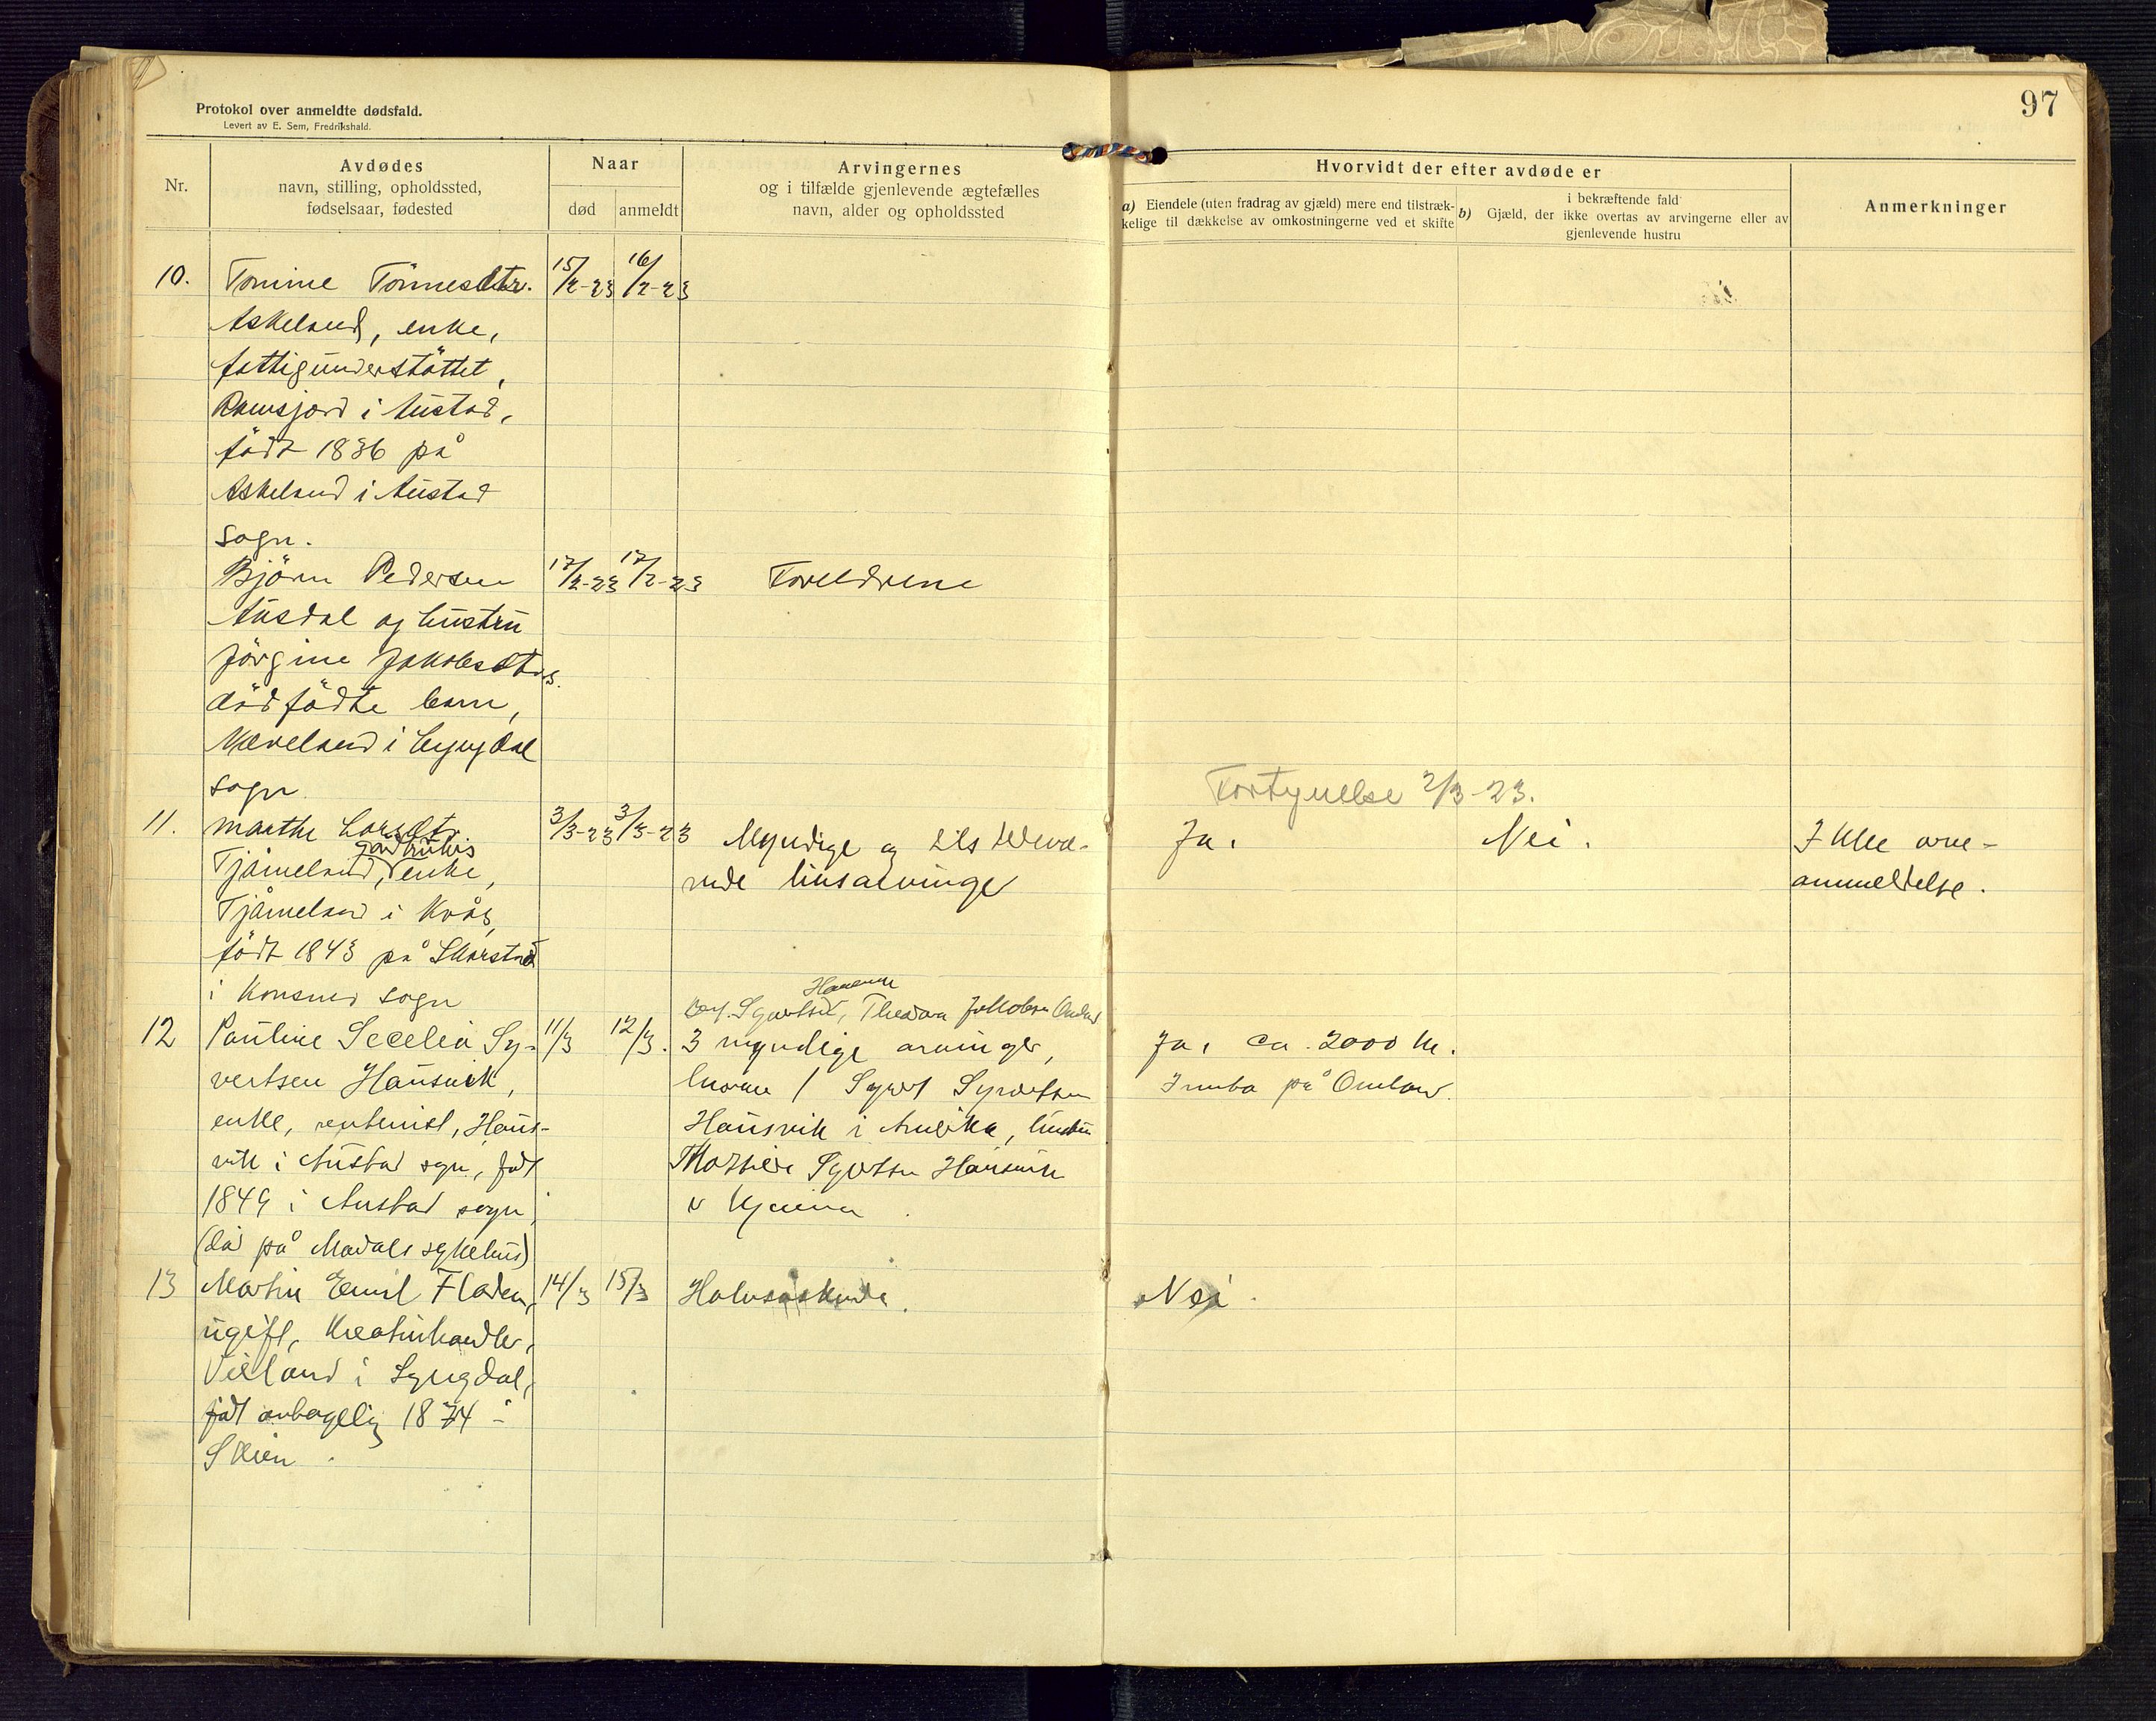 97
Protokol over anmeldte dødsfald.
Levert av E. Sem, Fredrikshald.
Nr.
Avdødes
navn, stilling, opholdssted,
fødselsaar, fødested
Naar
død
anmeldt
Arvingernes
og i tilfælde gjenlevende ægtefælles
navn, alder og opholdssted
Hvorvidt der efter avdøde er
a) Eiendele (uten fradrag av gjæld) mere end tilstræk-
kelige til dækkelse av omkostningerne ved et skifte
b) i bekræftende fald
Gjæld, der ikke overtas av arvingerne eller av
gjenlevende hustru
Anmerkninger
10. Tomine Tönnesdtr. 15/2-23 16/2-23
Askeland, enke,
fattigunderstöttet,
i Austad,
födt 1836 på
Askeland i Austad
sogn.
Björn Pedersen 17/2-23 17/2-23 Foreldrene
Ausdal og hustru
Jörgine Jakobsdtrs.
dödfödte barn,
i Lyngdal
sogn
Fortynelse 2/3-23.
11. Marthe Larsdtr. 3/3-23 3/3-23 Myndige og tilstedevæ- Ja. Nei. Ikke arve-
gårdbrukers
Tjåmeland, enke, rende livsarvinger anmeldelse.
Tjåmeland i Kvås,
födt 1843 på Skarstad
i Konsmo sogn
Hausvik
Syvertsen, Theodora Jakobsen
12 Pauline Secelia Sy- 11/3 12/3. 3 myndige arvinger, Ja, ca. 2000 kr.
vertsen Hausvik, hvorav 1 Syvert Syvertsen Innbo på
enke, rentenist, Haus- Hausvik i Amerika,
vik i Austad sogn, født Syvertsen Hausvik
1849 i Austad sogn,
(død på Mandals sykehus)
13 Martin Emil Fladen, 14/3 15/3 Halvsøskende. Nei.
ugift, Kreaturhandler,
i Lyngdal,
født antagelig 1874 i
Skien.